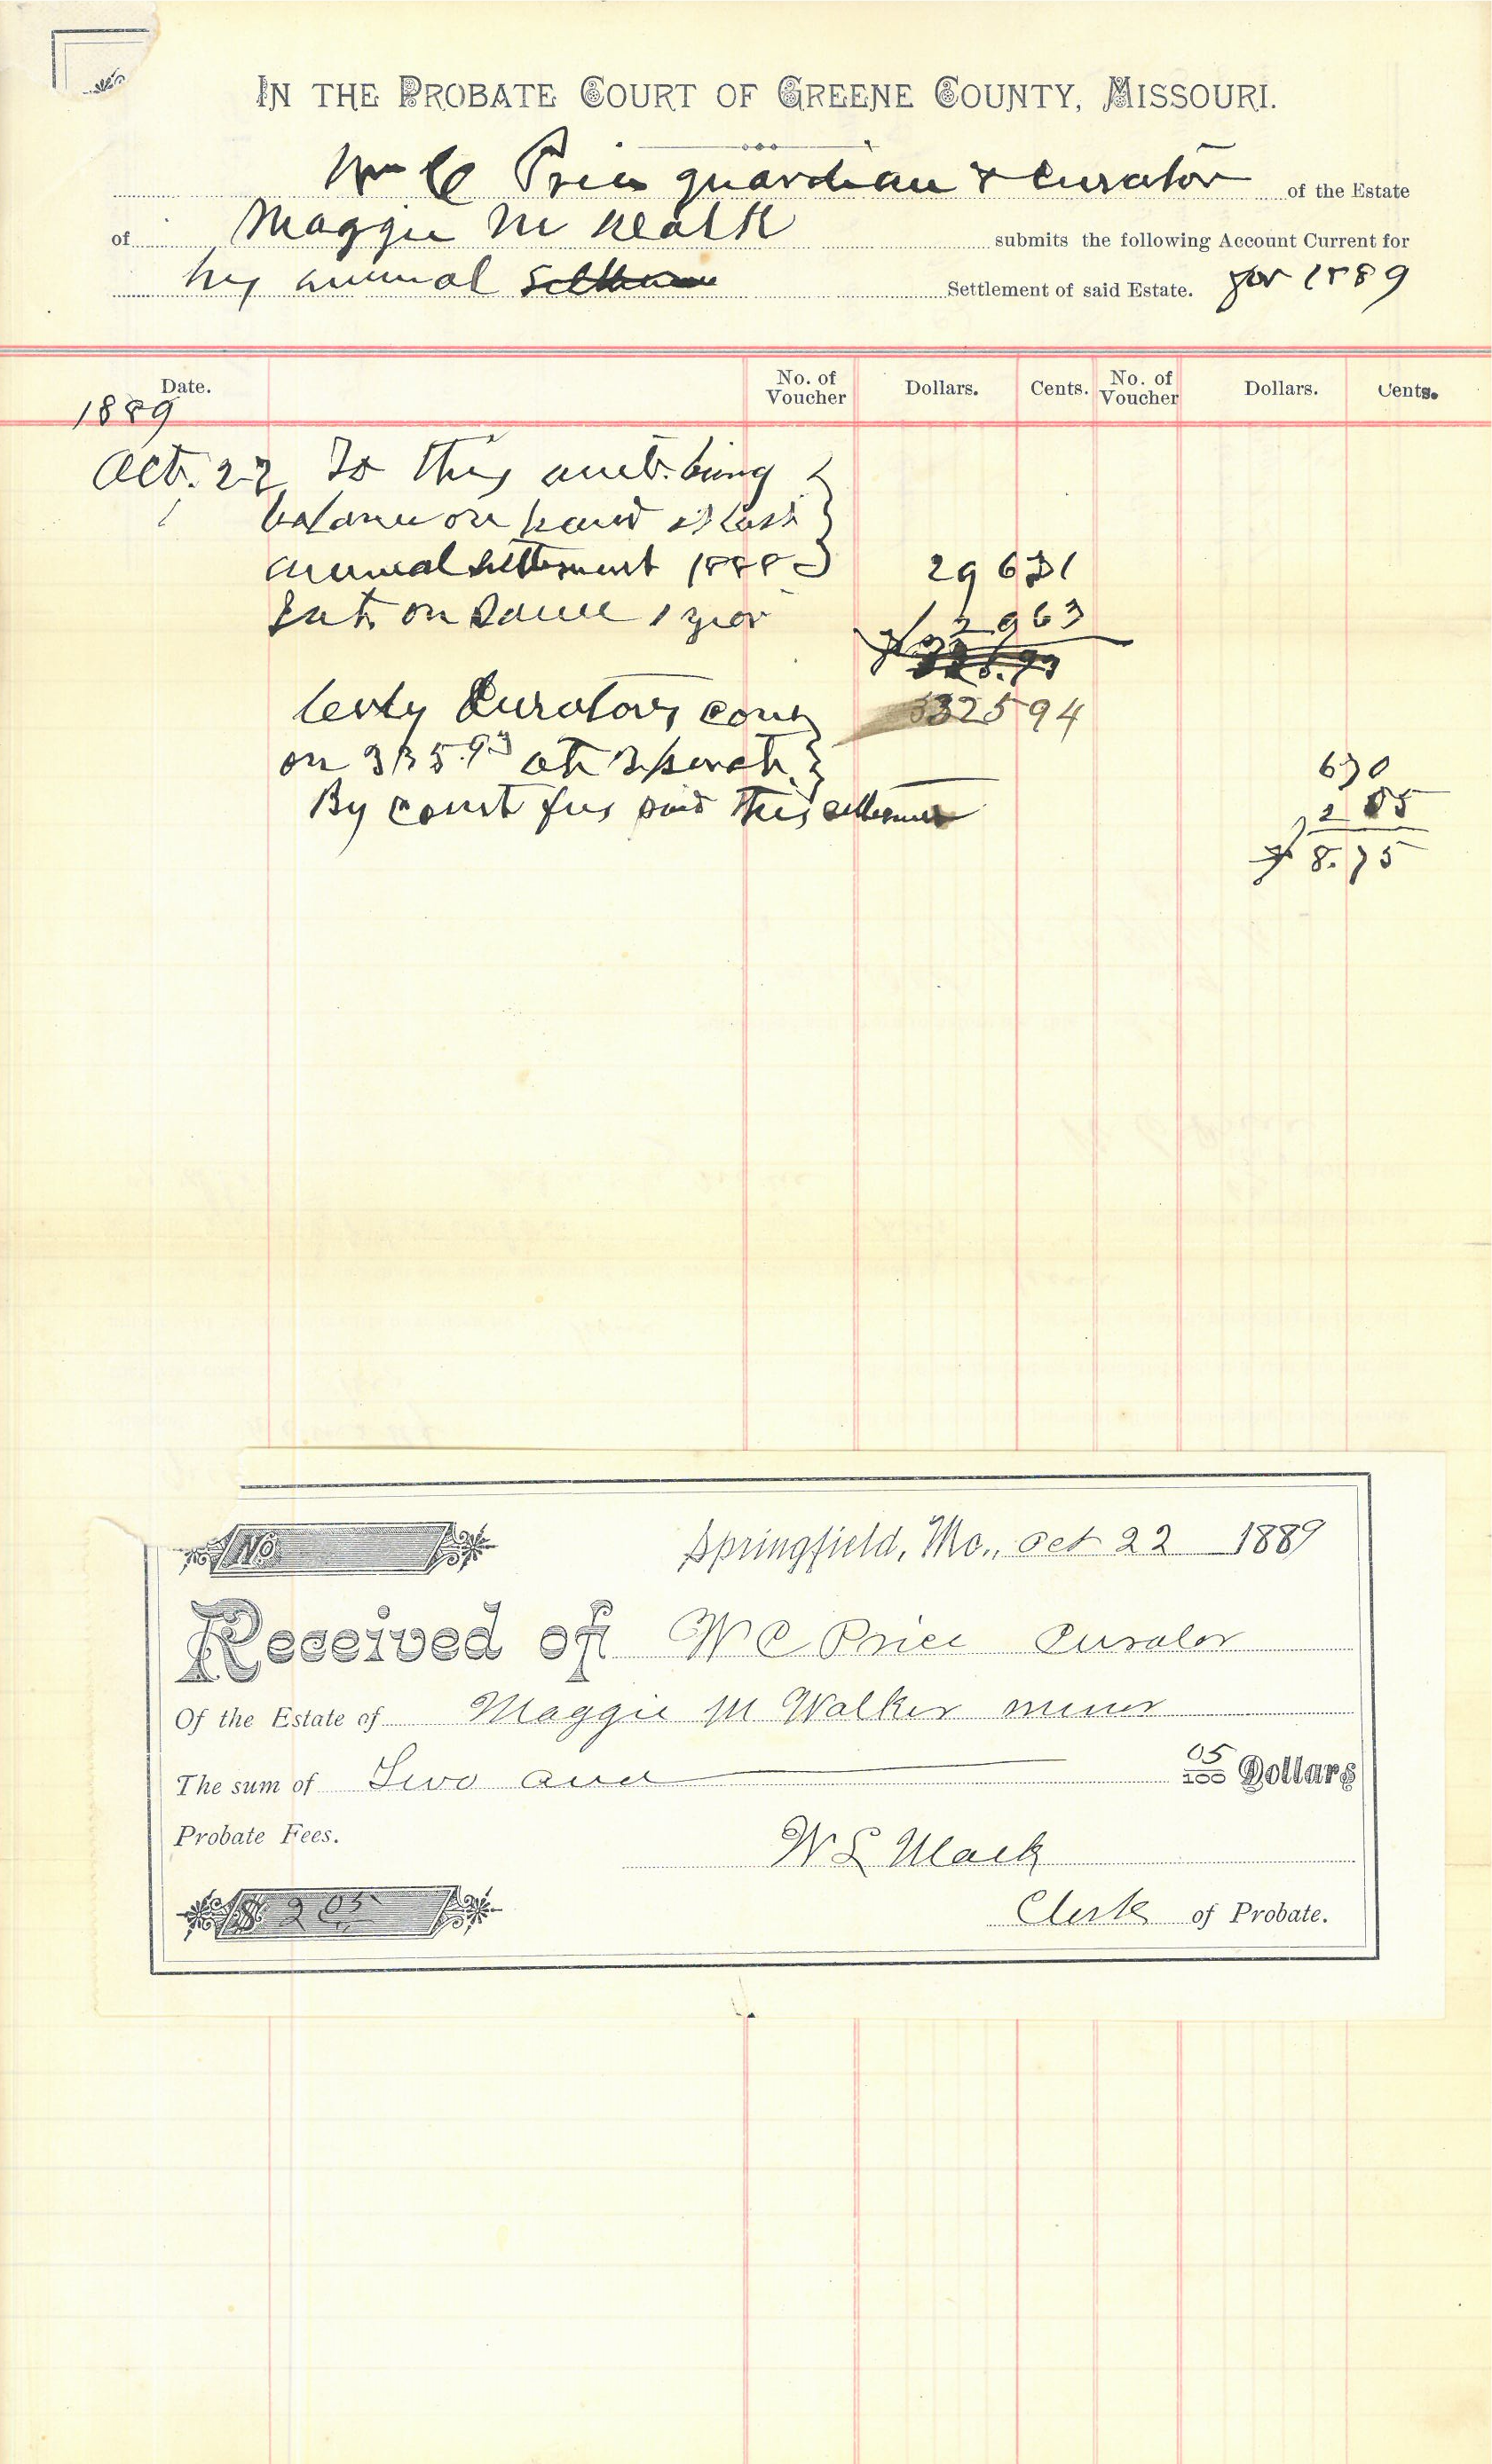 IN THE PROBATE COURT OF GREENE COUNTY, MISSOURI.
Wm C Price guardian & curator of the Estate
of Maggie M submits the following Account Current for
his annual Settlement of said Estate. for 1889
Date. No. of Voucher Dollars. Cents. No. of Voucher Dollars. Cents.
1889
Oct. 22 To this amt. being
balance on hand at last
annual settlement 1888 296 31
Int. on same 1 year 29 63
325 94
By Curators com
on at
6 70
By court fees paid this settlement 2 05
$ 8.75
No
Springfield, Mo., Oct 22 1889
Received of W C Price Curator
Of the Estate of Maggie M Walker minor
The sum of Two and 05/100 Dollars
Probate Fees.
W L Mack
$ 2 05
Clerk of Probate.